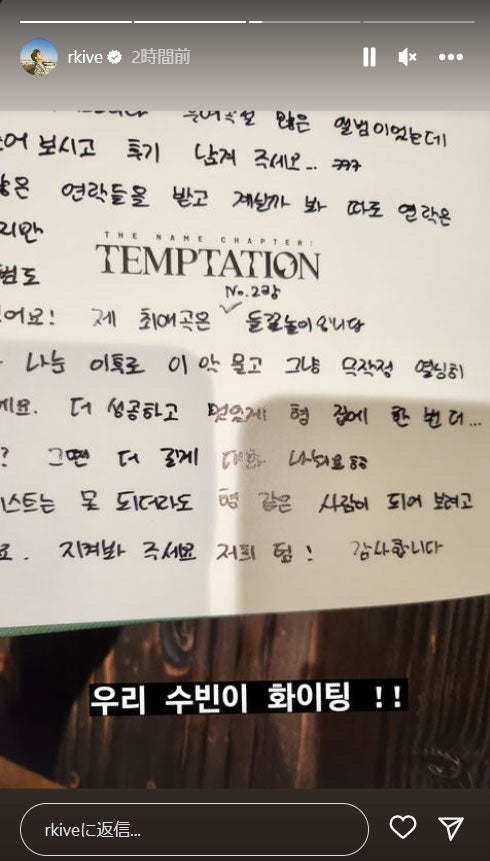 rkive 2時間前
많은 앨범이었는데
어 보시고 후기 남겨 주세요... ㅋㅋㅋ
많은 연락들을 받고 계실까 봐 따로 연락은
지만
THE NAME CHAPTER:
TEMPTATION
No.2랑
어요! 제 최애곡은 ✓ 돌꽃놀이입니다
나눈 이후로 이 악 물고 그냥 무작정 열심히
게요. 더 성공하고 멋있게 형 집에 한 번 더...
? 그땐 더 길게 대화 나눠요ㅎㅎ
스트는 못 되더라도 형 같은 사람이 되어 보려고
요. 지켜봐 주세요 저희 팀! 감사합니다
우리 수빈이 화이팅 !!
rkiveに返信...